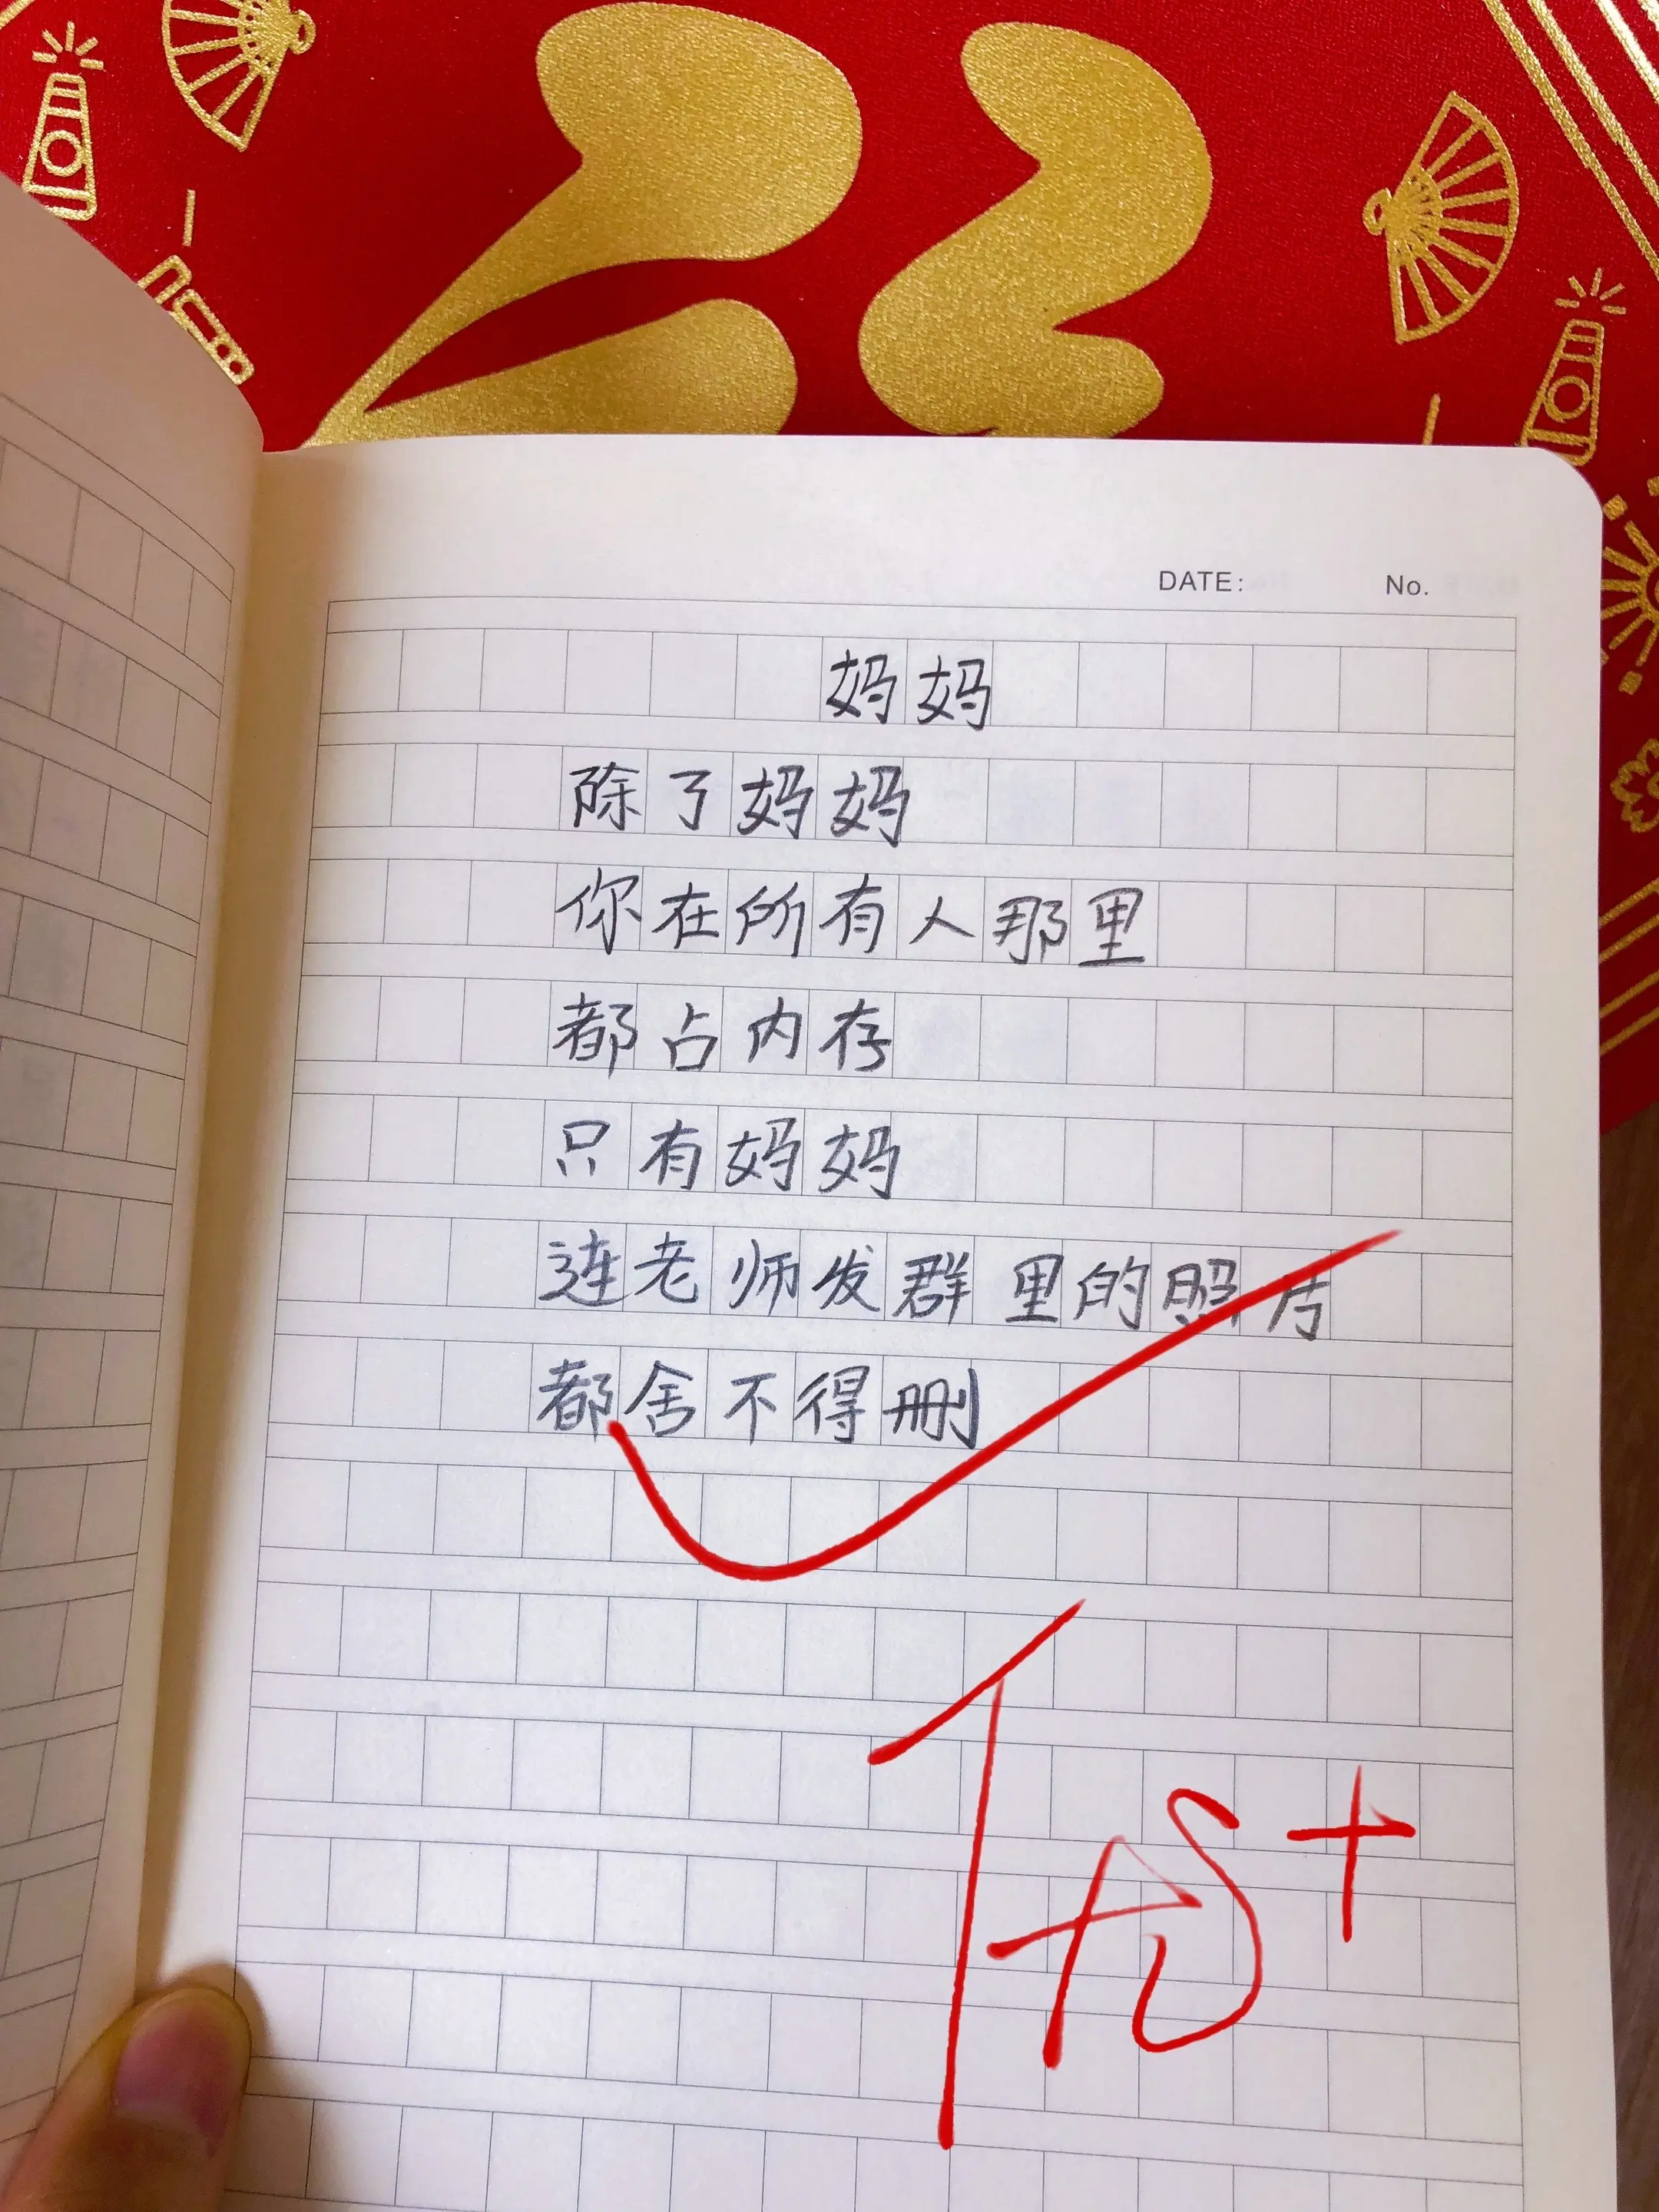 DATE: No.
妈妈
除了妈妈
你在所有人那里
都占内存
只有妈妈
连老师发群里的照片
都舍不得删